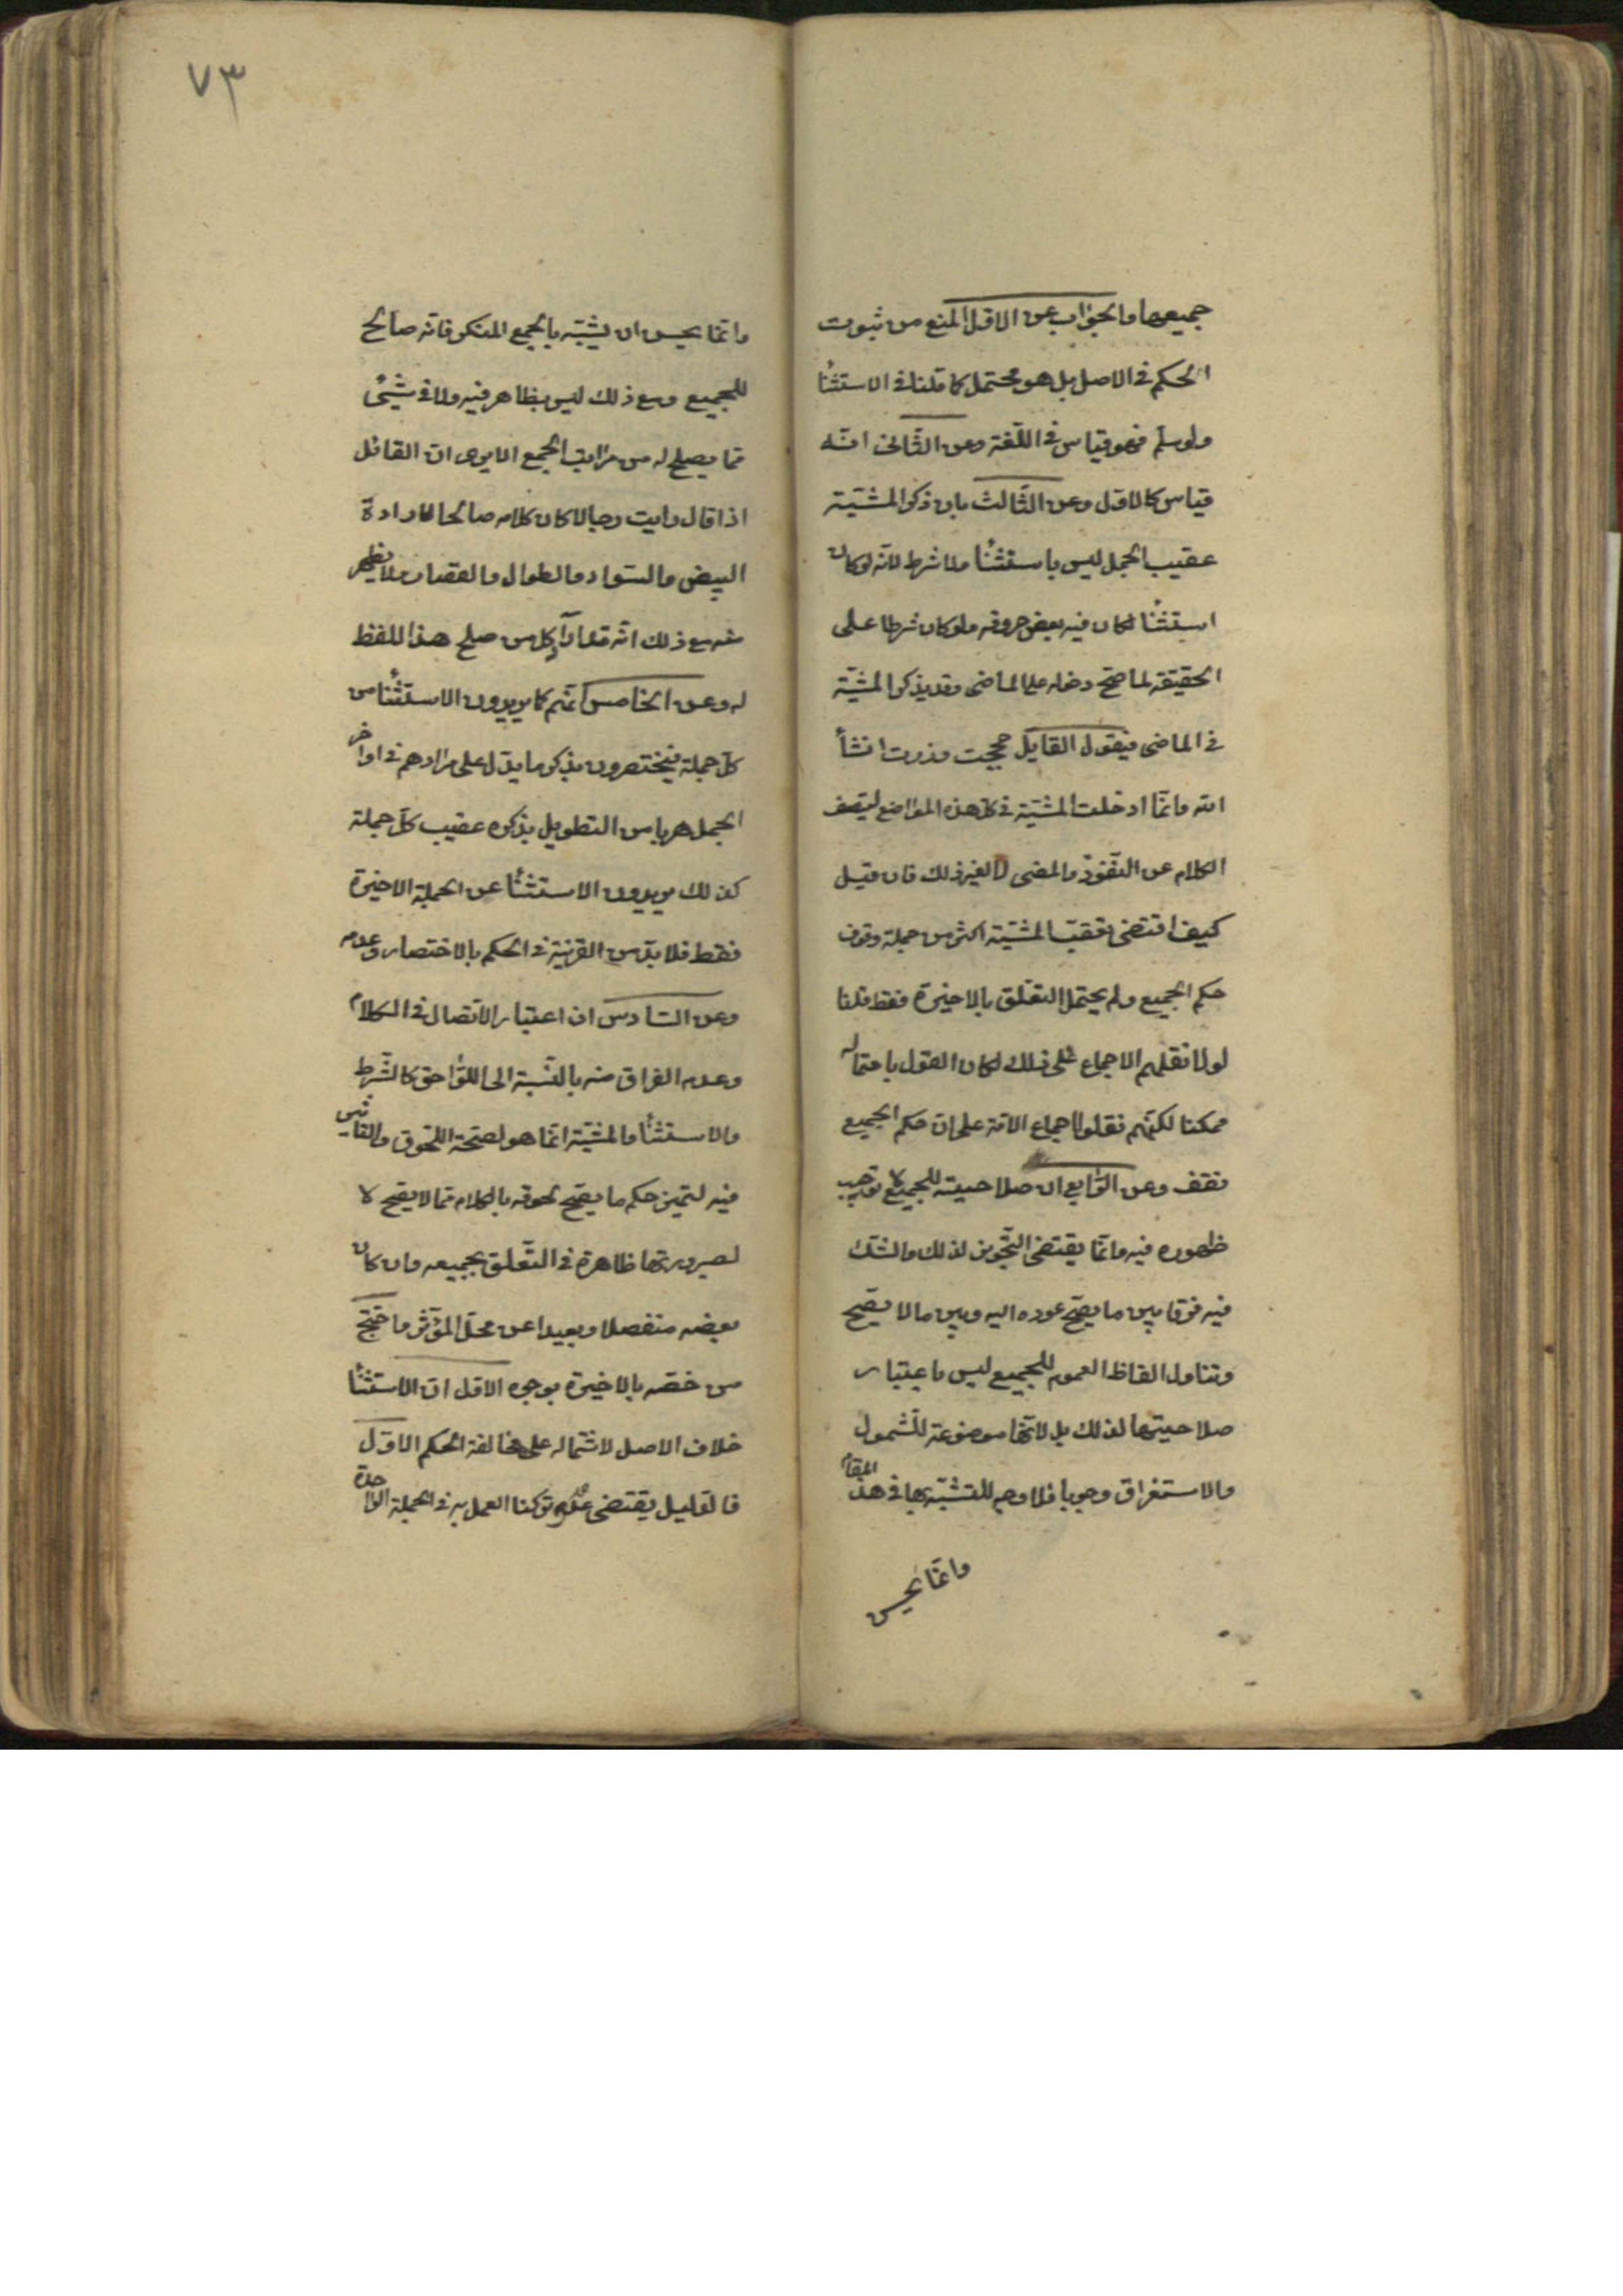 جميعها والجواب عن الاول المنع من ثبوت
الحكم في الاصل بل هو محتمل كما قلنا في الاستثنا
ولو سلم فهو قياس في اللغة وعن الثاني انه
قياس كالاول وعن الثالث بان ذكر المشية
عقيب الجمل ليس باستثنا ولا شرط لانه لو كان
استثنا لكان فيه بعض حروفه ولو كان شرطا على
الحقيقة لما صح دخله على الماضي وقد يذكر المشية
في الماضي فيقول القايل حججت وزرت انشأ
الله وانما ادخلت المشية في كل هذه المواضع ليقف
الكلام عن النفوذ والمضي لا لغير ذلك فان قيل
كيف اقتضى تعقب المشية اكثر من جملة وقوف
حكم الجميع ولم يحتمل التعلق بالاخيرة فقط قلنا
لولا نقلهم الاجماع على ذلك لكان القول باحتماله
ممكنا لكنهم نقلوا اجماع الامة على ان حكم الجميع
نقف وعن الرابع ان صلاحيته للجميع لا توجب
ظهوره فيه وانما يقتضي التجويز لذلك والشك
فيه فرقا بين ما يصح عوده اليه وبين ما لا يصح
وتناول الفاظ العموم للجميع ليس باعتبار
صلاحيتها لذلك بل لانها موضوعة للشمول
والاستغراق وجوبا فلا وجه للتشبيه بها في هذا المقام
وانما يحسن
٧٣
وانما يحسن ان يشبه بالجمع المنكر فانه صالح
للجميع ومع ذلك ليس بظاهر فيه ولا في شيئ
مما يصلح له من مراتب الجمع الا يرى ان القائل
اذا قال رايت رجالا كان كلامه صالحا لارادة
البيض والسواد والطوال والقصار ولا يظهر
منه مع ذلك انه قد اراد كل من صلح هذا اللفظ
له وعن الخامس انهم كما يريدون الاستثنا من
كل جملة فيختصرون بذكر ما يدل على مرادهم في اواخر
الجمل هربا من التطويل بذكره عقيب كل جملة
كذلك يريدون الاستثنا عن الجملة الاخيرة
فقط فلا بد من القرينة في الحكم بالاختصار وعدمه
وعن السادس ان اعتبار الاتصال في الكلام
وعدم الفراق منه بالنسبة الى اللواحق كالشرط
والاستثنا والمشية انما هو لصحة اللحوق والتاثير
فيه ليتميز حكم ما يصح لحوقه بالكلام مما لا يصح لا
لصيرورتها ظاهرة في التعلق بجميعه وان كان
بعضه منفصلا وبعيدا عن محل المؤثر واحتج
من خصه بالاخيرة بوجوه الاول ان الاستثنا
خلاف الاصل لاشتماله على مخالفة الحكم الاول
فالدليل يقتضي عدمه تركنا العمل به في الجملة الواحدة